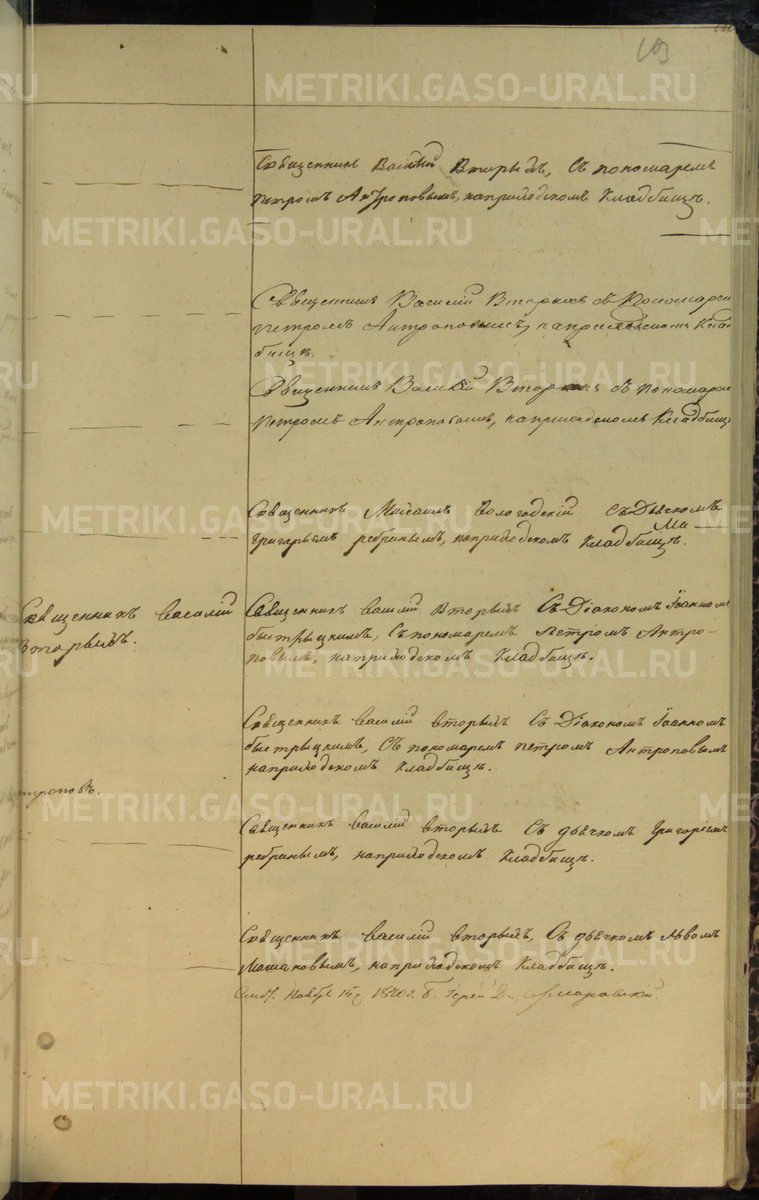 103
Священникъ Василій Вторыхъ, Съ пономаремъ
петромъ Антроповымъ, наприходскомъ Кладбищѣ.
Священникъ Василій Вторыхъ съ Пономарем
Петромъ Антроповымъ, наприходскомъ Клад
бищѣ.
Священникъ Василій Вторыхъ съ пономарем
Петромъ Антроповымъ, наприходскомъ Кладбищ
Священникъ Михаилъ Вологодскій Съ Дьячкомъ
григорьемъ ребринымъ, наприходскомъ Кладбищѣ.
Священникъ василій
Вторыхъ.
Священникъ василій Вторыхъ Съ Діакономъ Іоанномъ
быстрыцкимъ, Съ пономаремъ петромъ Антро-
повымъ, наприходскомъ Кладбищѣ.
Священникъ василій вторыхъ Съ Діакономъ Іоанномъ
быстрыцкимъ, Съ пономаремъ петромъ Антроповымъ
наприходскомъ Кладбищѣ.
троповъ.
Священникъ василій вторыхъ Съ дьячкомъ григоріемъ
ребринымъ, наприходскомъ Кладбищѣ.
Священникъ василій вторыхъ, Съ дьячкомъ львомъ
наприходскомъ Кладбищѣ.
Ноября 15 1840г. Б. Іерей Д.
METRIKI.GASO-URAL.RU